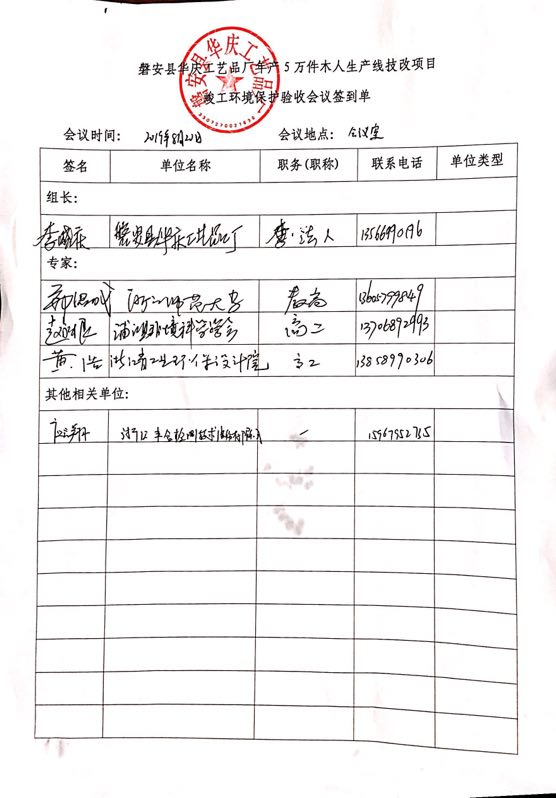 磐安县华庆工艺品厂年产5万件木人生产线技改项目
竣工环境保护验收会议签到单
磐安县华庆工艺品厂
3307270021670
会议时间： 2019年8月22日 会议地点： 会议室
签名 单位名称 职务(职称) 联系电话 单位类型
组长：
磐安县华庆工艺品厂 法人
专家：
浙江师范大学 13605799849
浦江县环境科学学会 高工 13706892993
黄浩 浙江省工业环保设计院 高工 13858990306
其他相关单位：
检测技术 一 15967952735